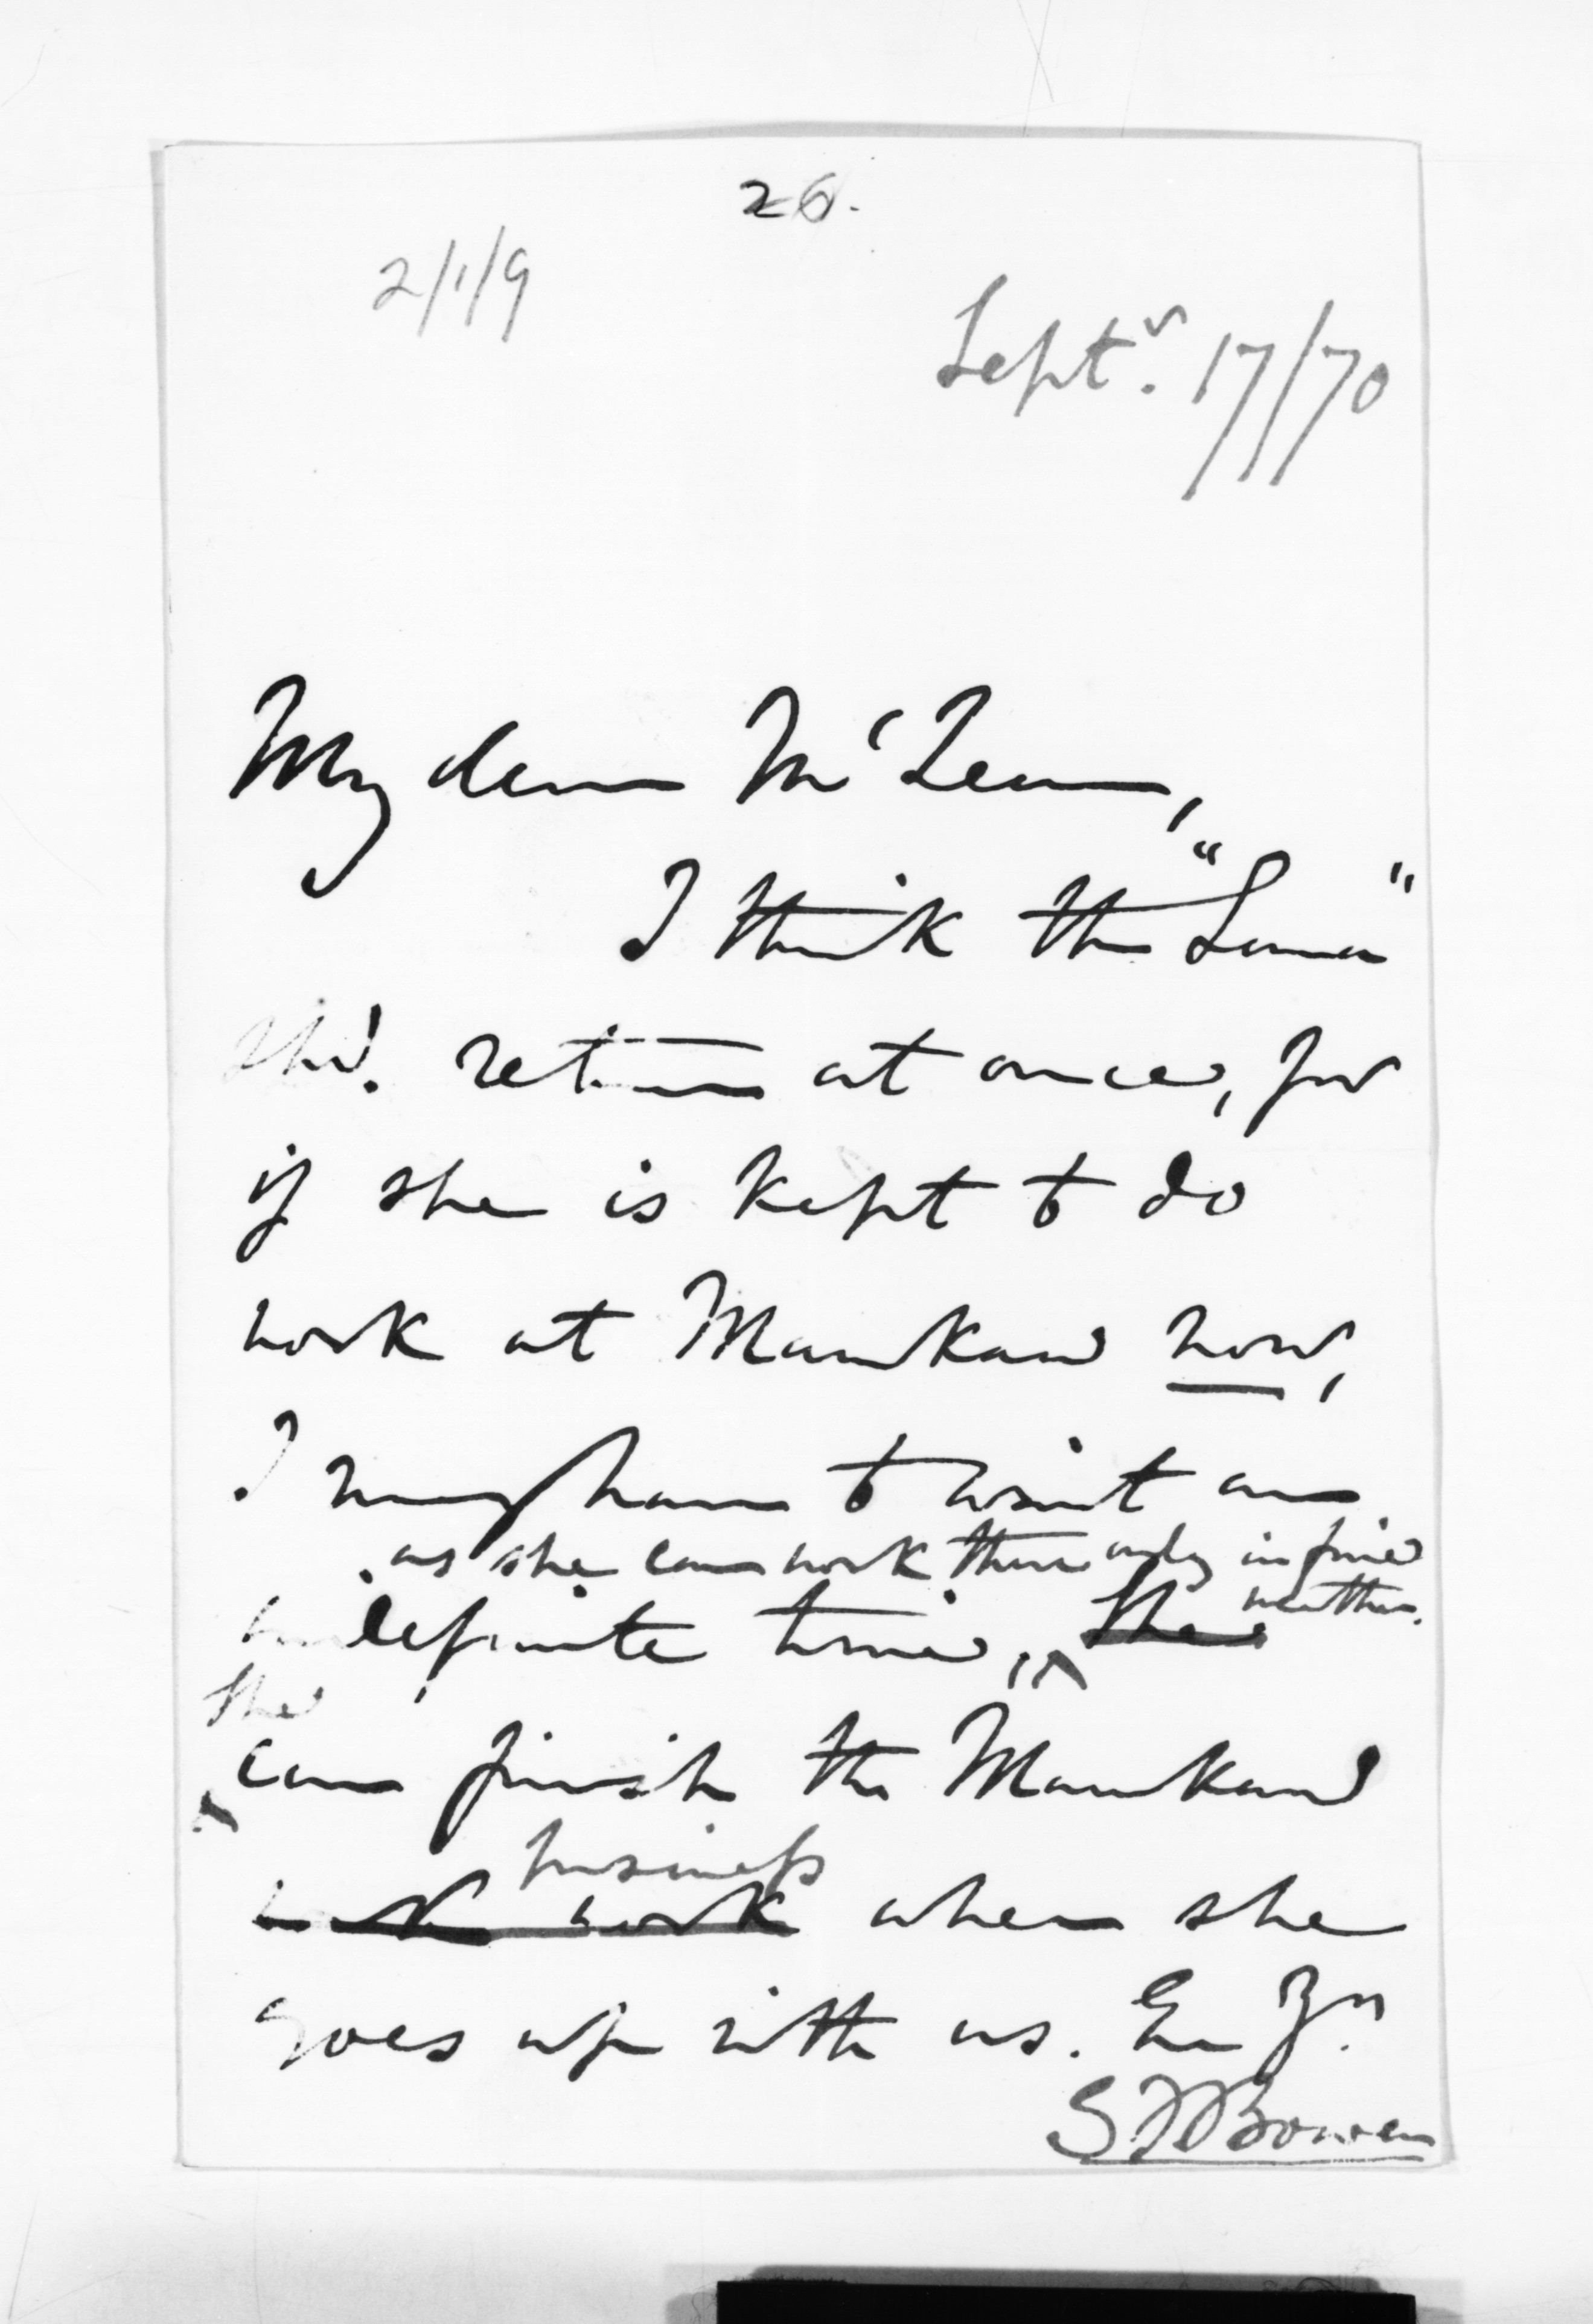 26.
2/1/9
Septr. 17/70
My dear McLean,
I think the "Luna"
shd. return at once, for
if she is kept to do
work at Manukau now,
I may have to wait an
as she can work there only in fine
weather.
indefinite time, She
She
can finish the Manukau
business
work when she
goes up with us. Ev Yrs
G F Bowen